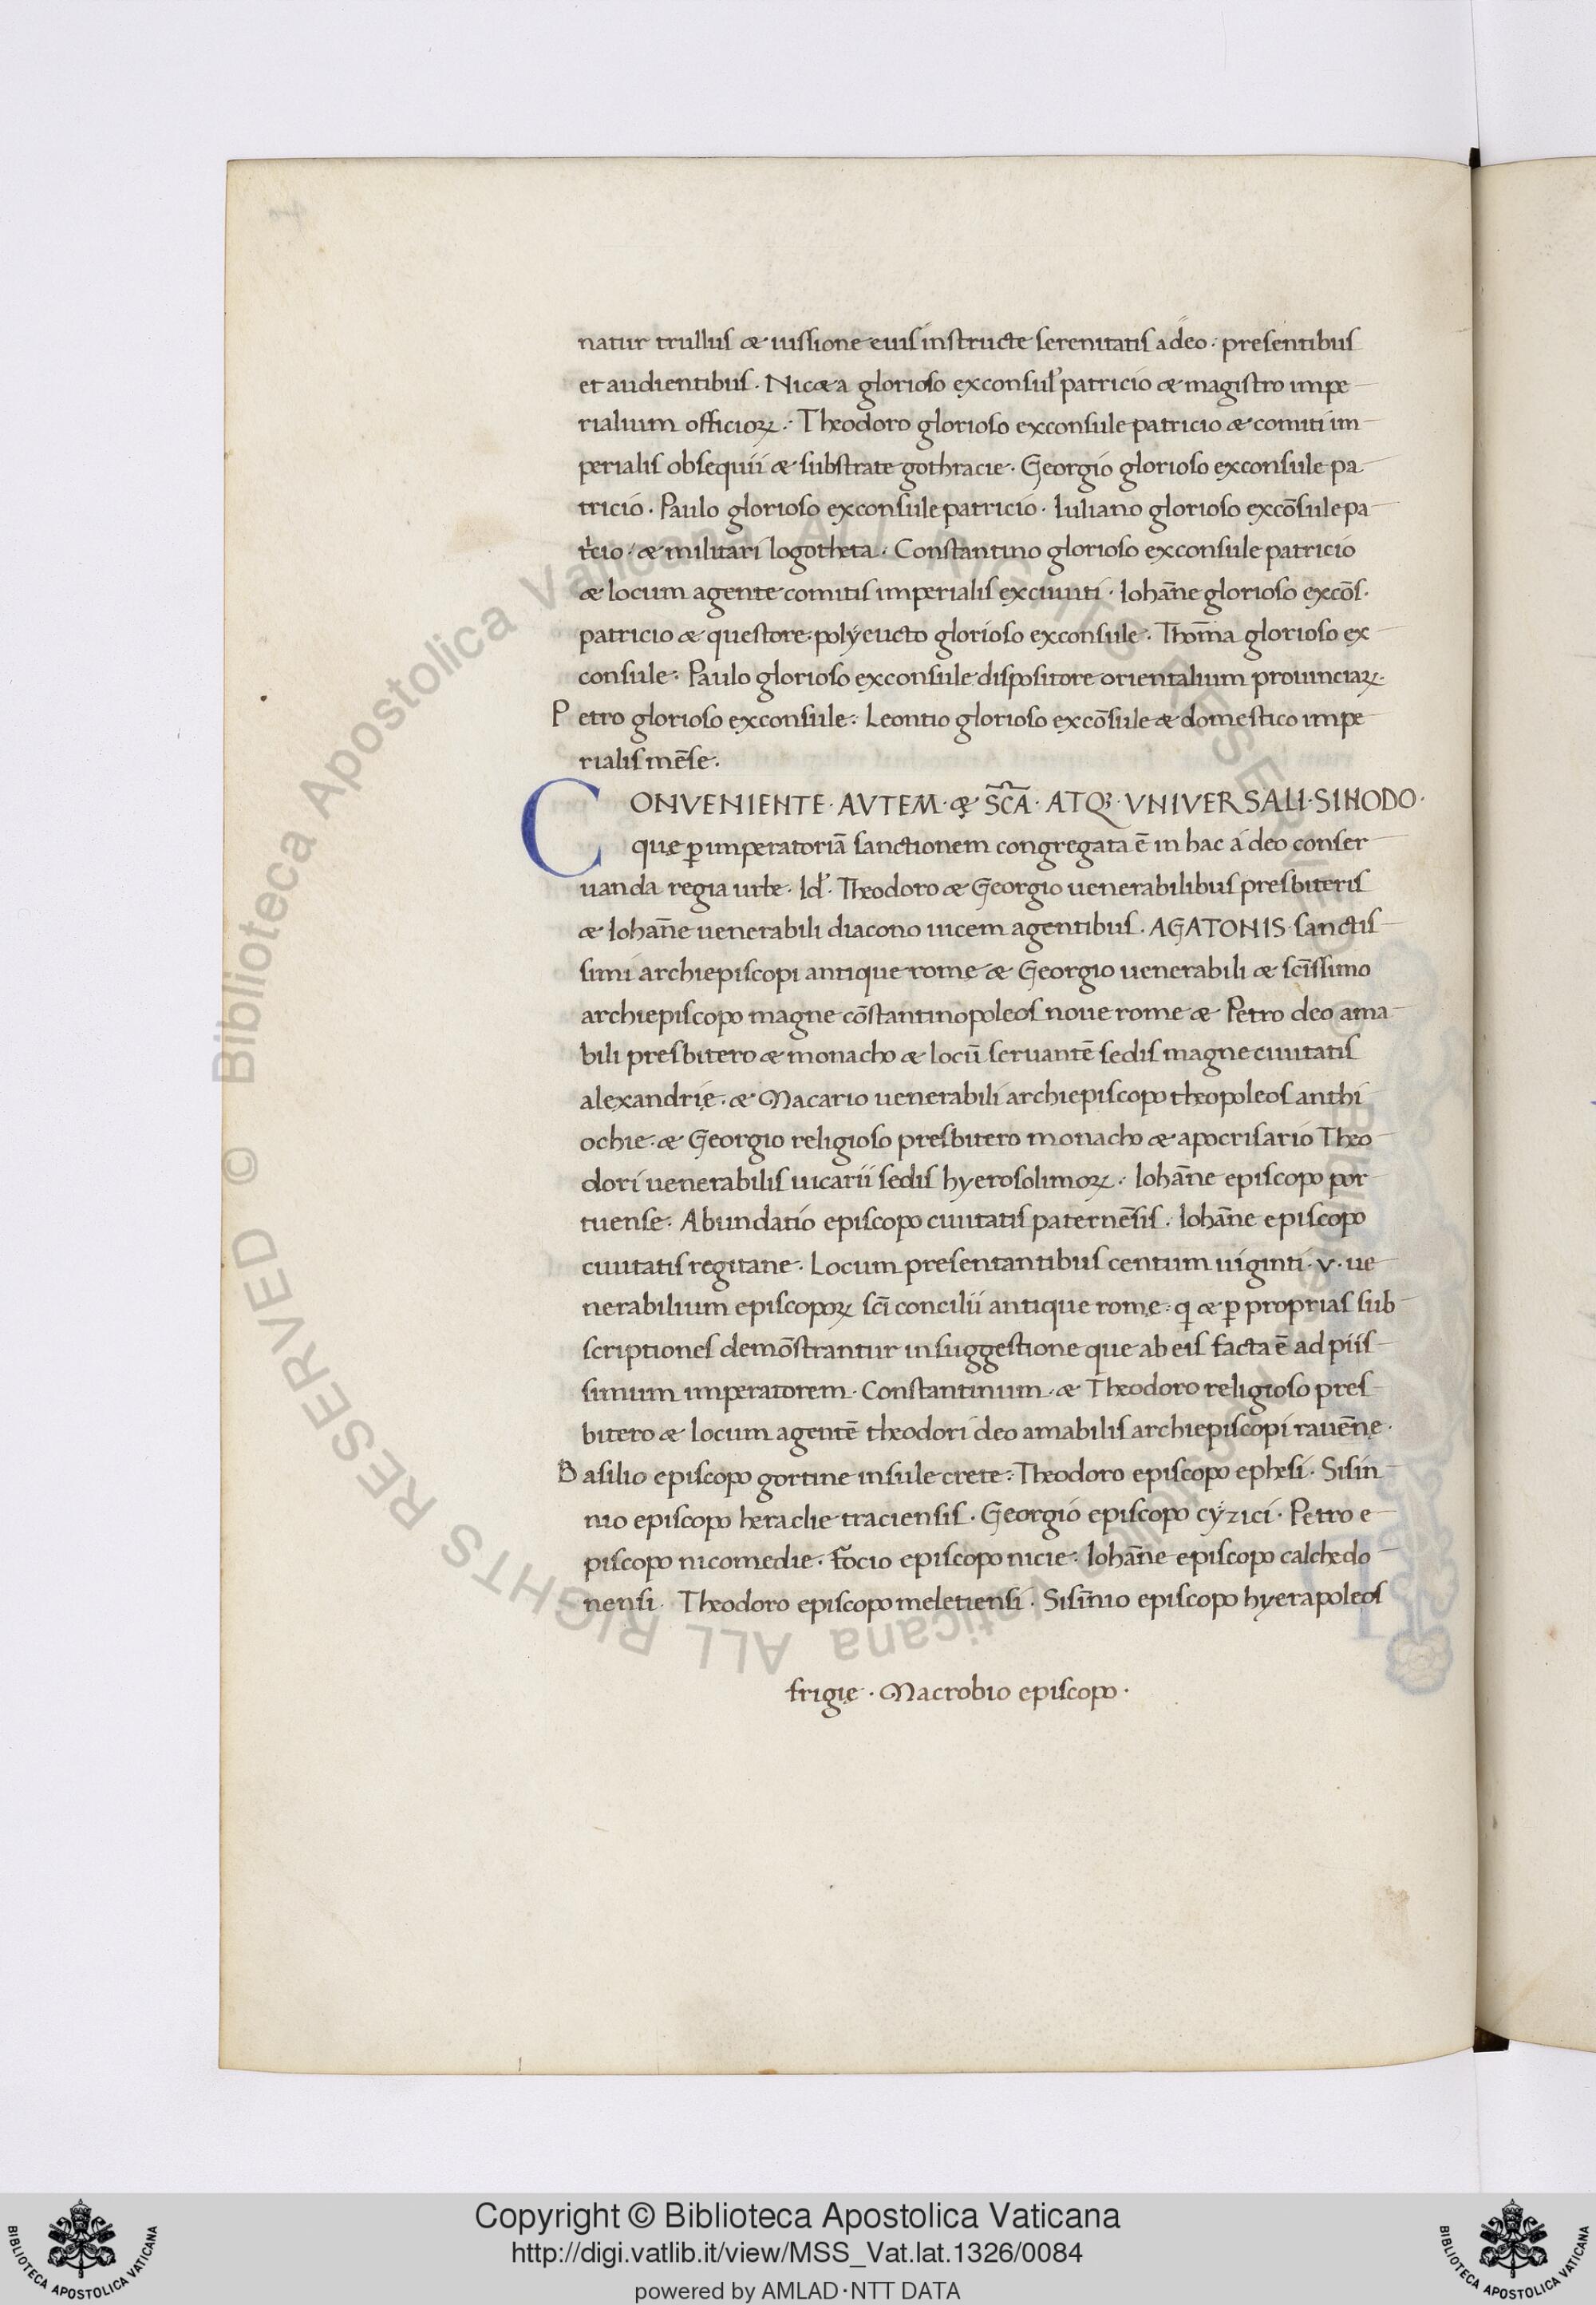 natur trullus & iussione euis instructe serenitatis a deo · presentibus
et audientibus · Nicæa glorioso exconsul' patricio & magistro impe
rialium officioꝝ · Theodoro glorioso exconsule patricio & comiti im
perialis obsequii & substrate gothracie · Georgio glorioso exconsule pa
tricio · Paulo glorioso exconsule patricio · Iuliano glorioso excōsule pa
tⁱcio · & militari logotheta · Constantino glorioso exconsule patricio
& locum agente comitis imperialis exciuiti · Iohāne glorioso excōs ·
patricio & questore · polyeucto glorioso exconsule · Thōma glorioso ex
consule · Paulo glorioso exconsule dispositore orientalium prouinciaꝝ ·
Petro glorioso exconsule · Leontio glorioso excōsule & domestico impe
rialis mēse ·
CONVENIENTE · AVTEM · & SC̄A · ATQꝫ · VNIVERSALI · SINODO ·
quę ꝑ imperatoriā sanctionem congregata ē in hac a deo conser
uanda regia urbe · Id' · Theodoro & Georgio uenerabilibus presbiteris
& Iohāne uenerabili diacono uicem agentibus · AGATONIS · sanctis
simi archiepiscopi antique romę & Georgio uenerabili & sc̄issimo
archiepiscopo magne cōstantinopoleos noue rome & Petro deo ama
bili presbitero & monacho & locū seruantē sedis magne ciuitatis
alexandrię · & Macario uenerabili archiepiscopo theopoleos anthi
ochie · & Georgio religioso presbitero monacho & apocrisario Theo
dori uenerabilis uicarii sedis hyerosolimoꝝ · Iohāne episcopo por
tuense · Abundatio episcopo ciuitatis paternēsis · Iohāne episcopo
ciuitatis regitane · Locum presentantibus centum uiginti · v · ue
nerabilium episcopoꝝ sc̄i concilii antique romę · q & ꝑ proprias sub
scriptiones demōstrantur in suggestione que ab eis facta ē ad piis
simum imperatorem · Constantinum · & Theodoro religioso pres
bitero & locum agentē theodori deo amabilis archiepiscopi rauēnę ·
Basilio episcopo gortine insule crete · Theodoro episcopo ephesi · Sisin
nio episcopo heraclie traciensis · Georgio episcopo cyzici · Petro e
piscopo nicomedie · Focio episcopo nicie · Iohāne episcopo calchedo
nensi · Theodoro episcopo meletiensi · Sisīnio episcopo hyerapoleos
frigię · Macrobio episcopo ·
© Biblioteca Apostolica Vaticana ALL RIGHTS RESERVED
© Biblioteca Apostolica Vaticana ALL RIGHTS RESERVED
Copyright © Biblioteca Apostolica Vaticana
http://digi.vatlib.it/view/MSS_Vat.lat.1326/0084
powered by AMLAD·NTT DATA
BIBLIOTECA APOSTOLICA VATICANA
BIBLIOTECA APOSTOLICA VATICANA